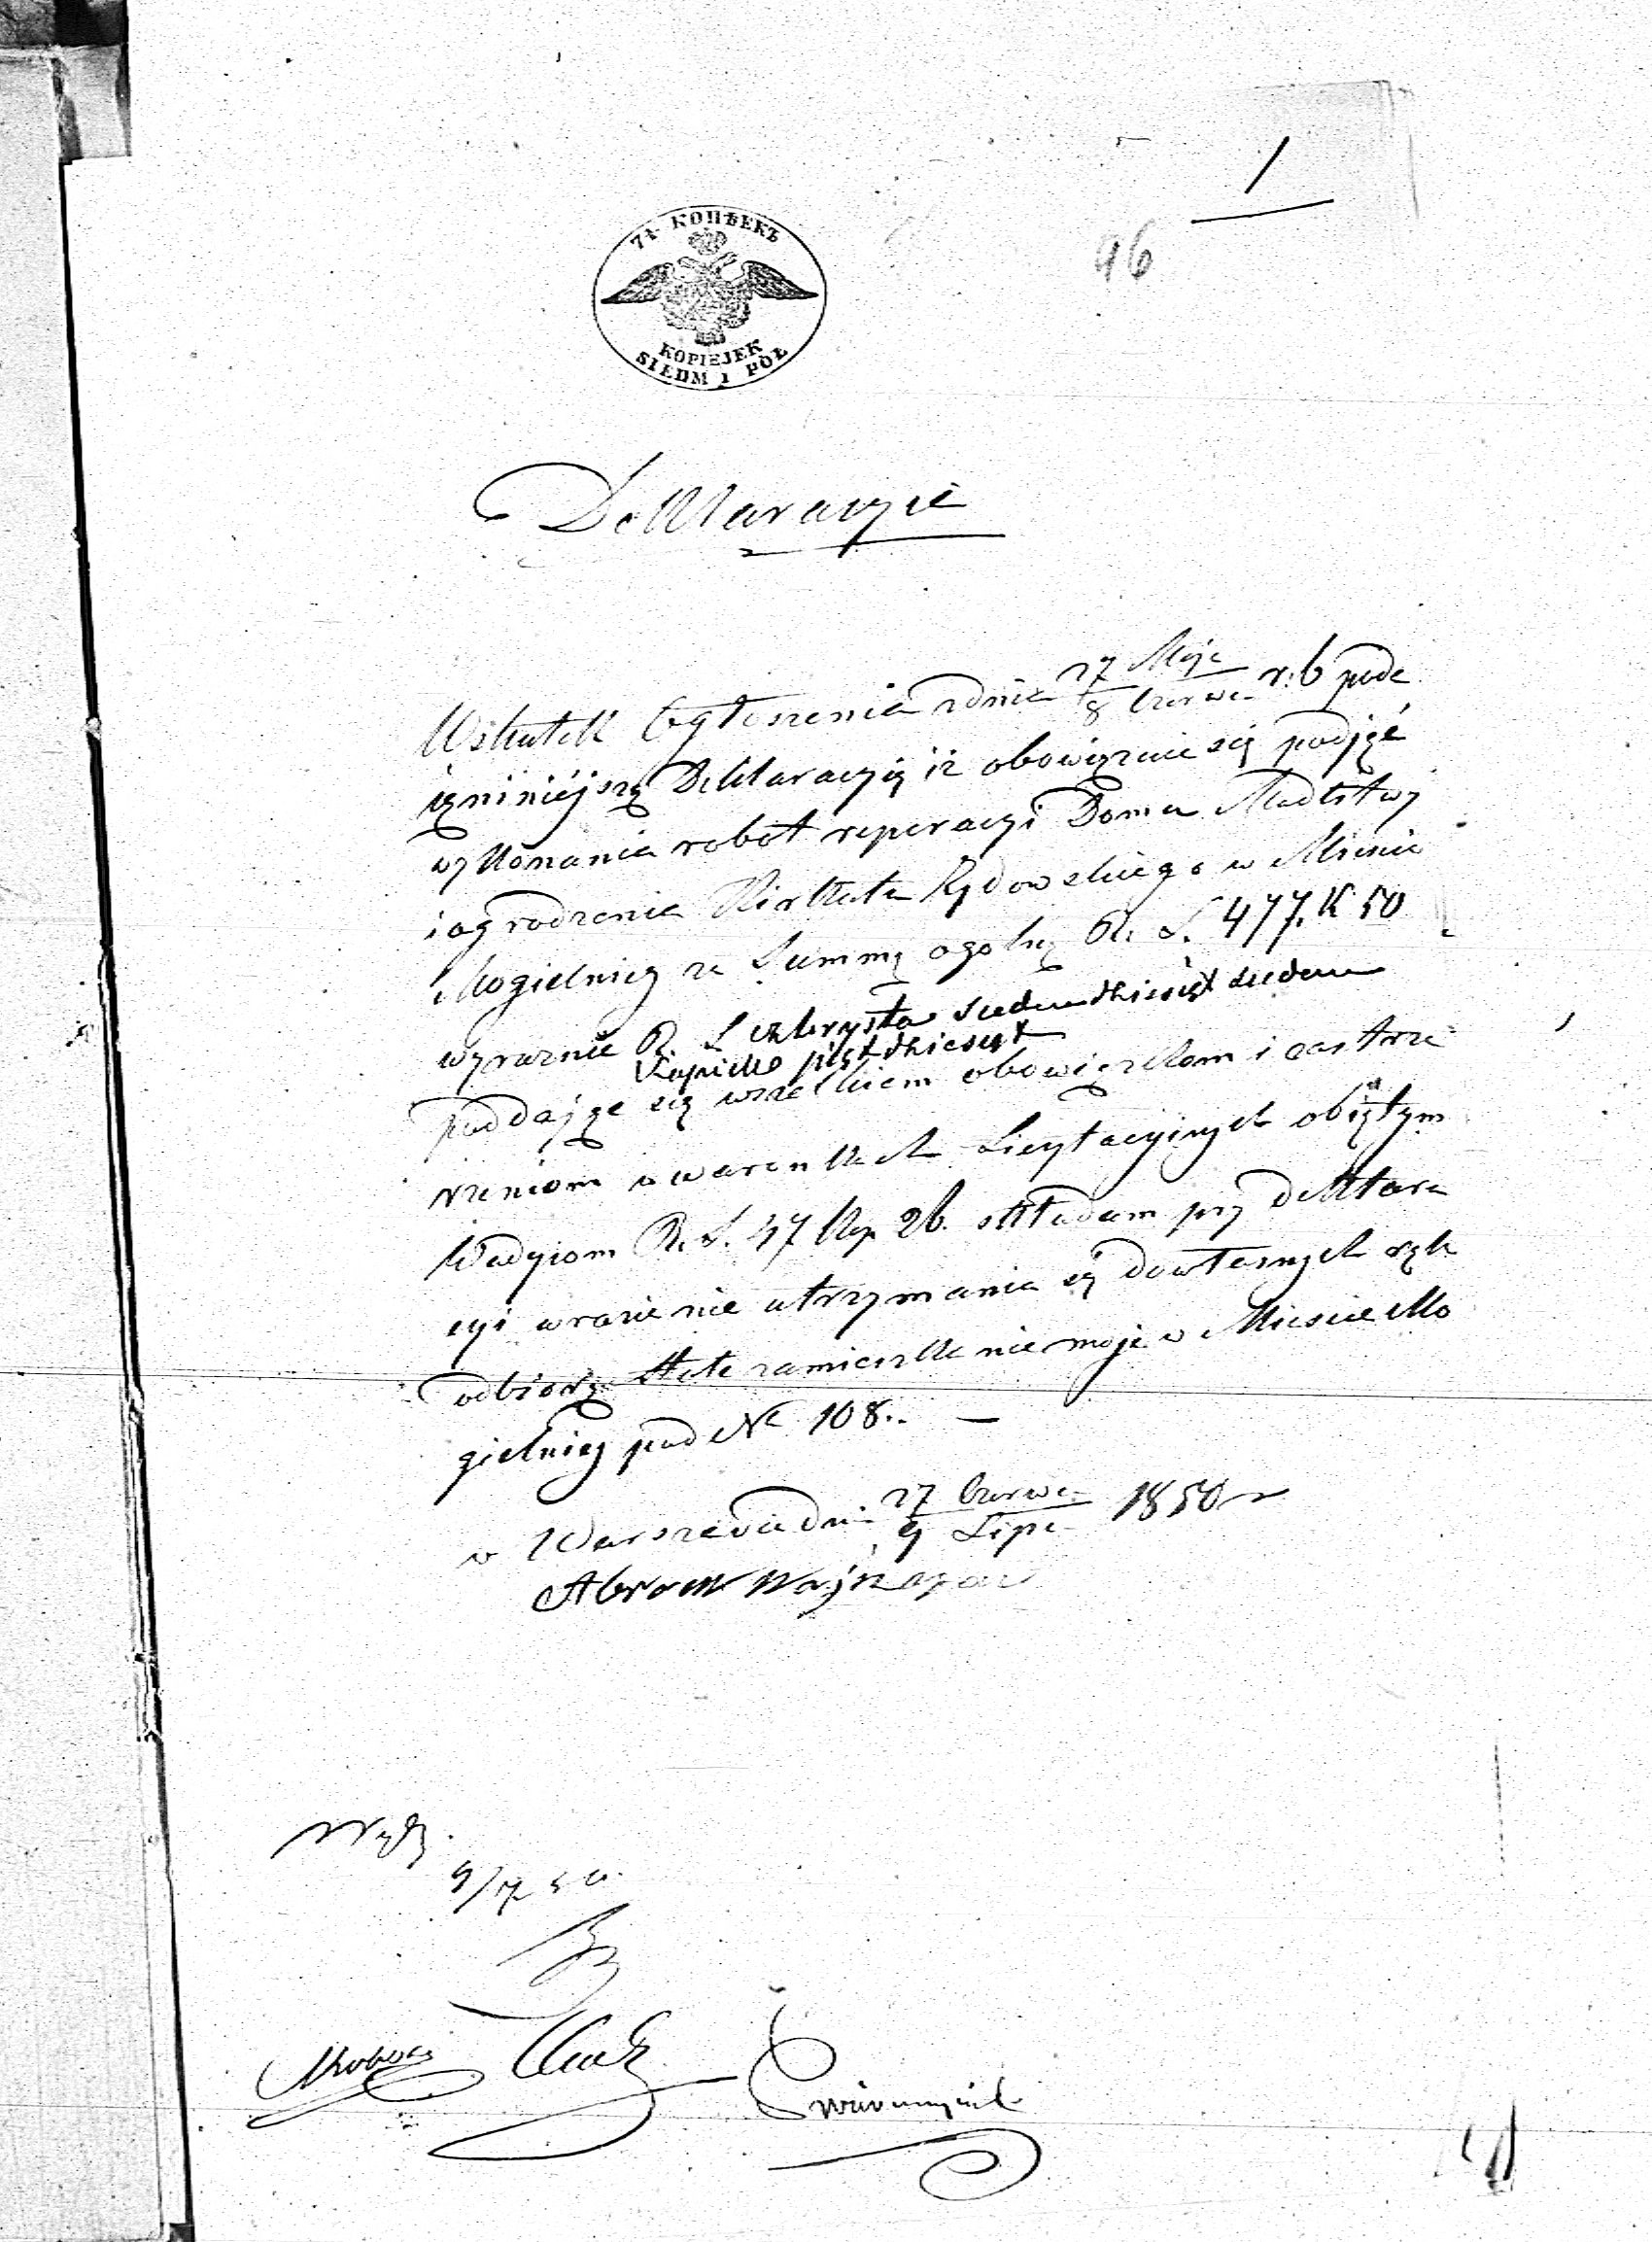 1
96
7½ КОПѢЕКЪ
KOPIEJEK
SIEDM I PÓŁ
Deklaracyie
Wskutek Ogłoszenia zdnia 27 Maja / 8 Czerwca r. b poda
ię niniejszą Deklaracyią iż obowiązuie się podjąć
wykonania robot reperacyi Domu Modlitwy
i ogrodzenia Kirkuta Żydowskiego w Mieście
Mogielnicy za Summę ogolną R. S. 477. K 50
wyraznie R. S czterysta siedmdziesiąt siedem
Kopiiek pięćdziesiąt
poddając się wszelkiem obowiązkom i zastrze
rzeniom w warunkach Licytacyjnych obiętym
Wadyiom R. S. 47 Kop 26. składam przy deklara
cyi w razie nie utrzymania się do własnych rąk
odbiorę Stałe zamieszkanie moje w Mieście Mo
gielnicy pod No 108. —
w Warszawie dnia 27 Czerwca / 9 Lipca 1850 r
Abram
9/7 50